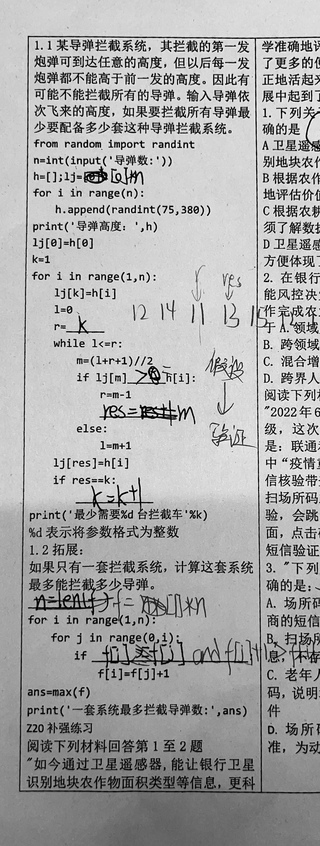 1.1 某导弹拦截系统，其拦截的第一发
炮弹可到达任意的高度，但以后每一发
炮弹都不能高于前一发的高度。因此有
可能不能拦截所有的导弹。输入导弹依
次飞来的高度，如果要拦截所有导弹最
少要配备多少套这种导弹拦截系统。
from random import randint
n=int(input('导弹数:'))
h=[];lj=[0]*n
for i in range(n):
h.append(randint(75,380))
print('导弹高度：',h)
lj[0]=h[0]
k=1
for i in range(1,n):
lj[k]=h[i]
l=0
r=k
while l<=r:
m=(l+r+1)//2
if lj[m] > h[i]:
r=m-1
res=m
else:
l=m+1
lj[res]=h[i]
if res==k:
k=k+1
print('最少需要%d 台拦截车'%k)
%d 表示将参数格式为整数
1.2 拓展：
如果只有一套拦截系统，计算这套系统
最多能拦截多少导弹。
f=[]*n
for i in range(1,n):
for j in range(0,i):
if f[j] and f[j]+1>
f[i]=f[j]+1
ans=max(f)
print('一套系统最多拦截导弹数:',ans)
Z20 补强练习
阅读下列材料回答第 1 至 2 题
"如今通过卫星遥感器,能让银行卫星
识别地块农作物面积类型等信息，更科
r res
12 14 11 13 15
假设
验证
学准确地评
了更多的便
正地活起来
展中起到了
1. 下列关
确的是
A 卫星遥感
别地块农作
B 根据农作
地评估价值
C 根据农耕
须了解数据
D 卫星遥感
方便体现了
2. 在银行
能风控决
作完成农
于 A.领域
B. 跨领域
C. 混合增
D. 跨界人
阅读下列材
"2022年6
级，这次
是：联通
中“疫情
信核验带
扫场所码
验，会跳
面，点击
短信验证
3. "下列
的是：
A. 场所码
商的短信
B. 扫场所
息，不存
C. 老年人
码，说明
件
D. 场所码
准，为动